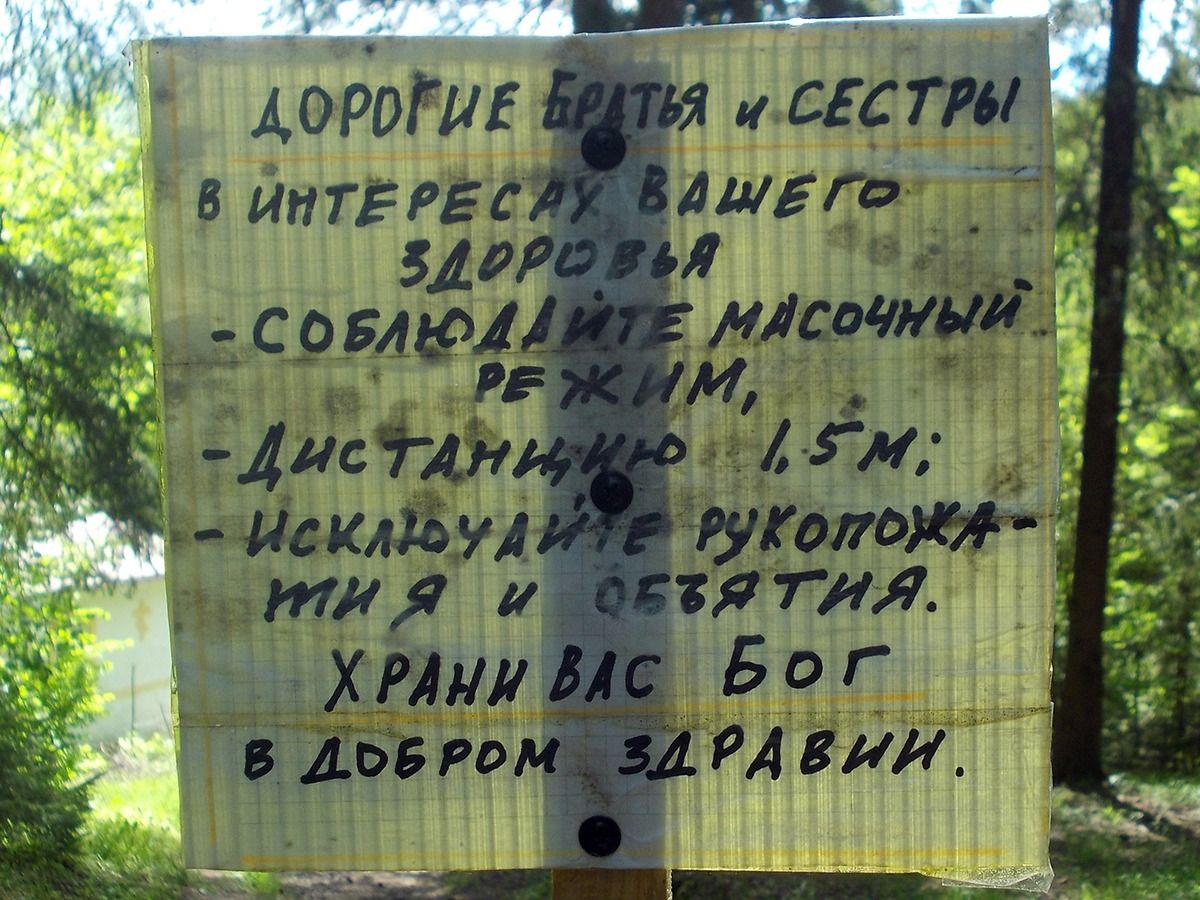 ДОРОГИЕ БРАТЬЯ и СЕСТРЫ
В ИНТЕРЕСАХ ВАШЕГО
ЗДОРОВЬЯ
- СОБЛЮДАЙТЕ МАСОЧНЫЙ
РЕЖИМ,
- ДИСТАНЦИЮ 1,5 М;
- ИСКЛЮЧАЙТЕ РУКОПОЖА-
ТИЯ И ОБЪЯТИЯ.
ХРАНИ ВАС БОГ
В ДОБРОМ ЗДРАВИИ.